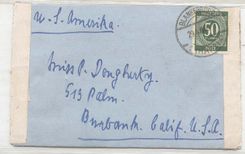 U.S. Amerika.
Miss P. Dougherty
513 Palm.
Burbank Calif. U.S.A.
50